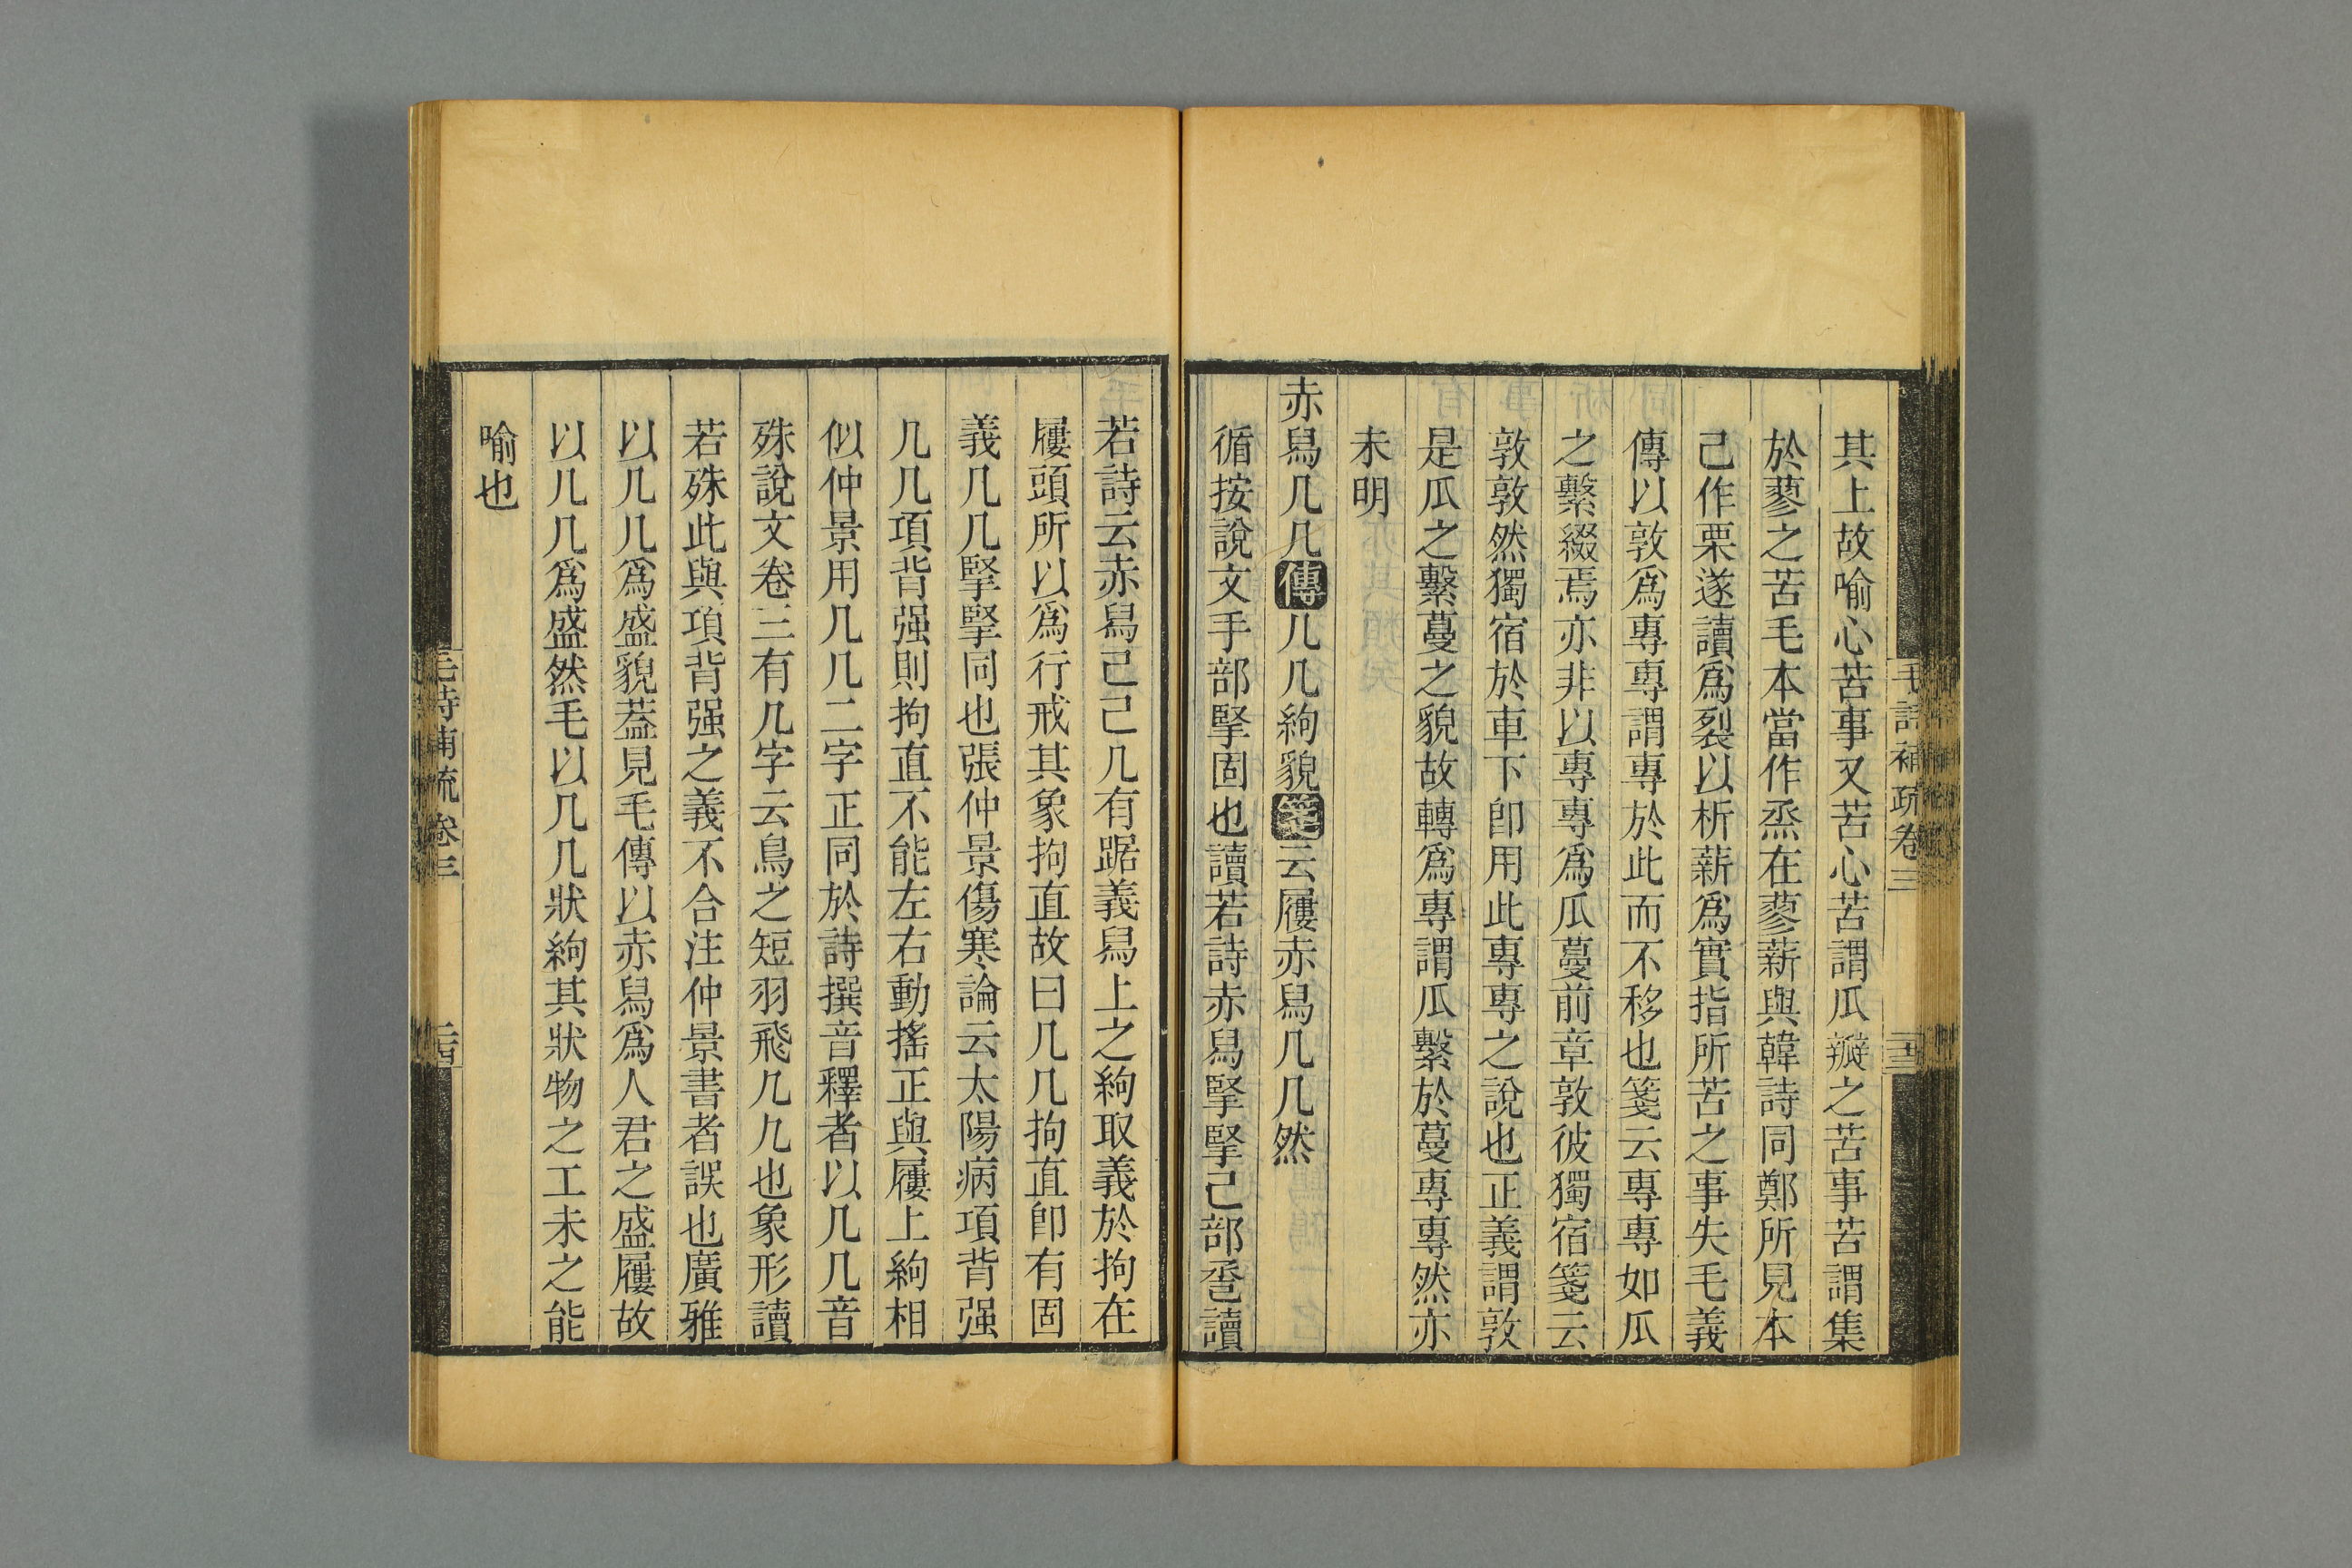 毛詩補疏卷三
二十三
其上故喻心苦事又苦心苦謂瓜瓣之苦事苦謂集
於蓼之苦毛本當作烝在蓼薪與韓詩同鄭所見本
己作栗遂讀爲裂以析薪爲實指所苦之事失毛義
傳以敦爲專專謂專於此而不移也箋云專專如瓜
之繫綴焉亦非以專專爲瓜蔓前章敦彼獨宿箋云
敦敦然獨宿於車下卽用此專專之說也正義謂敦
是瓜之繫蔓之貌故轉爲專謂瓜繫於蔓專專然亦
未明
赤舄几几傳几几絇貌箋云屨赤舄几几然
循按說文手部掔固也讀若詩赤舄掔掔己部巹讀
若詩云赤舄己己几有踞義舄上之絇取義於拘在
屨頭所以爲行戒其象拘直故曰几几拘直卽有固
義几几掔掔同也張仲景傷寒論云太陽病項背强
几几項背强則拘直不能左右動搖正與屨上絇相
似仲景用几几二字正同於詩撰音釋者以几几音
殊說文卷三有几字云鳥之短羽飛几几也象形讀
若殊此與項背强之義不合注仲景書者誤也廣雅
以几几爲盛貌葢見毛傳以赤舄爲人君之盛屨故
以几几爲盛然毛以几几狀絇其狀物之工未之能
喻也
毛詩補疏卷三